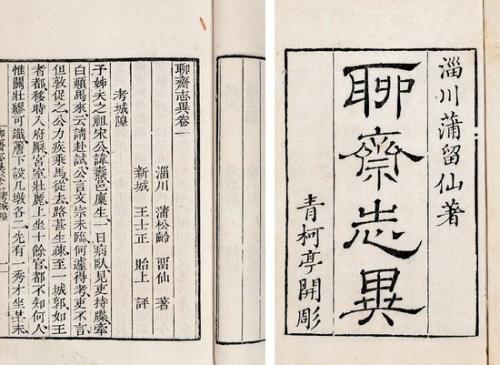 淄川蒲留仙著
聊齋志異
青柯亭開彫
聊齋志異卷一
淄川 蒲松齡 畱仙 著
新城 王士正 貽上 評
考城隍
予姊夫之祖宋公諱燾邑廩生一日病臥見吏持牒牽
白顛馬來云請赴試公言文宗未臨何遽得考吏不言
但敦促之公力疾乘馬從去路甚生疎至一城郭如王
者都移時入府廨宮室壯麗上坐十餘官都不知何人
惟關壯繆可識簷下設几墩各二先有一秀才坐其末